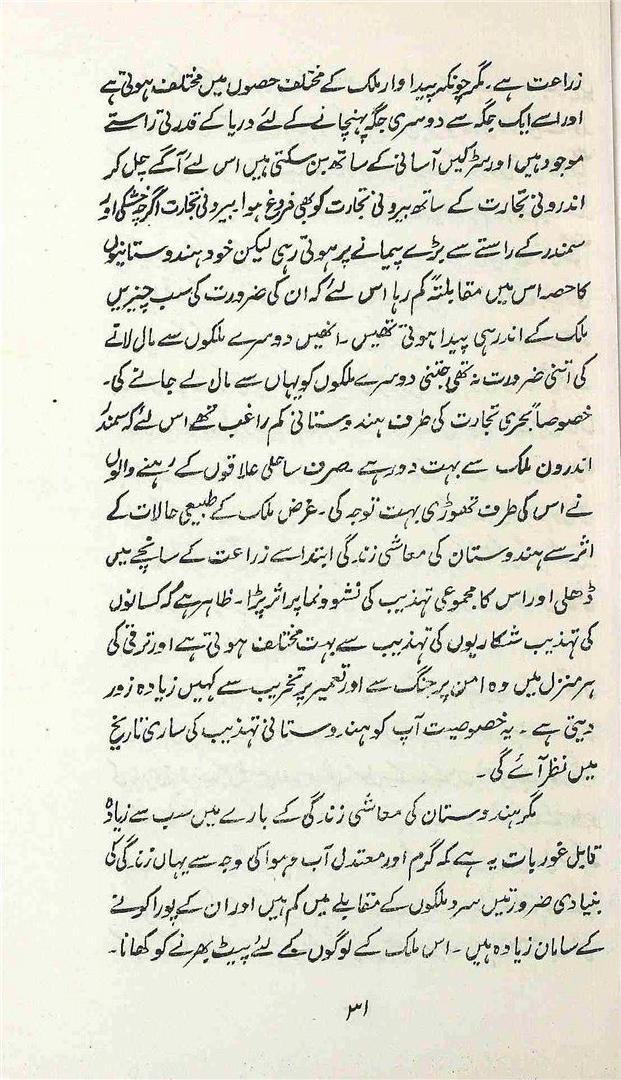 زراعت ہے۔ مگر چونکہ پیداوار ملک کے مختلف حصوں میں مختلف ہوتی ہے
اور اسے ایک جگہ سے دوسری جگہ پہنچانے کے لئے دریا کے قدرتی راستے
موجود ہیں اور سڑکیں آسانی کے ساتھ بن سکتی ہیں اس لئے آگے چل کر
اندرونی تجارت کے ساتھ بیرونی تجارت کو بھی فروغ ہوا۔ بیرونی تجارت اگرچہ خشکی اور
سمندر کے راستے سے بڑے پیمانے پر ہوتی رہی لیکن خود ہندوستانیوں
کا حصہ اس میں مقابلتہً کم رہا اس لئے کہ ان کی ضرورت کی سب چیزیں
ملک کے اندر ہی پیدا ہوتی تھیں۔ انھیں دوسرے ملکوں سے مال لانے
کی اتنی ضرورت نہ تھی جتنی دوسرے ملکوں کو یہاں سے مال لے جانے کی۔
خصوصاً بحری تجارت کی طرف ہندوستانی کم راغب تھے اس لئے کہ سمندر
اندرون ملک سے بہت دور ہے۔ صرف ساحلی علاقوں کے رہنے والوں
نے اس کی طرف تھوڑی بہت توجہ کی۔ غرض ملک کے طبیعی حالات کے
اثر سے ہندوستان کی معاشی زندگی ابتدا سے زراعت کے سانچے میں
ڈھلی اور اس کا مجموعی تہذیب کی نشوونما پر اثر پڑا۔ ظاہر ہے کہ کسانوں
کی تہذیب شکاریوں کی تہذیب سے بہت مختلف ہوتی ہے اور ترقی کی
ہر منزل میں وہ امن پر جنگ سے اور تعمیر پر تخریب سے کہیں زیادہ زور
دیتی ہے۔ یہ خصوصیت آپ کو ہندوستانی تہذیب کی ساری تاریخ
میں نظر آئے گی۔
مگر ہندوستان کی معاشی زندگی کے بارے میں سب سے زیادہ
قابل غور بات یہ ہے کہ گرم اور معتدل آب و ہوا کی وجہ سے یہاں زندگی کی
بنیادی ضرورتیں سرد ملکوں کے مقابلے میں کم ہیں اور ان کے پورا کونے
کے سامان زیادہ ہیں۔ اس ملک کے لوگوں کے لئے پیٹ بھرنے کو کھانا۔
۳۱